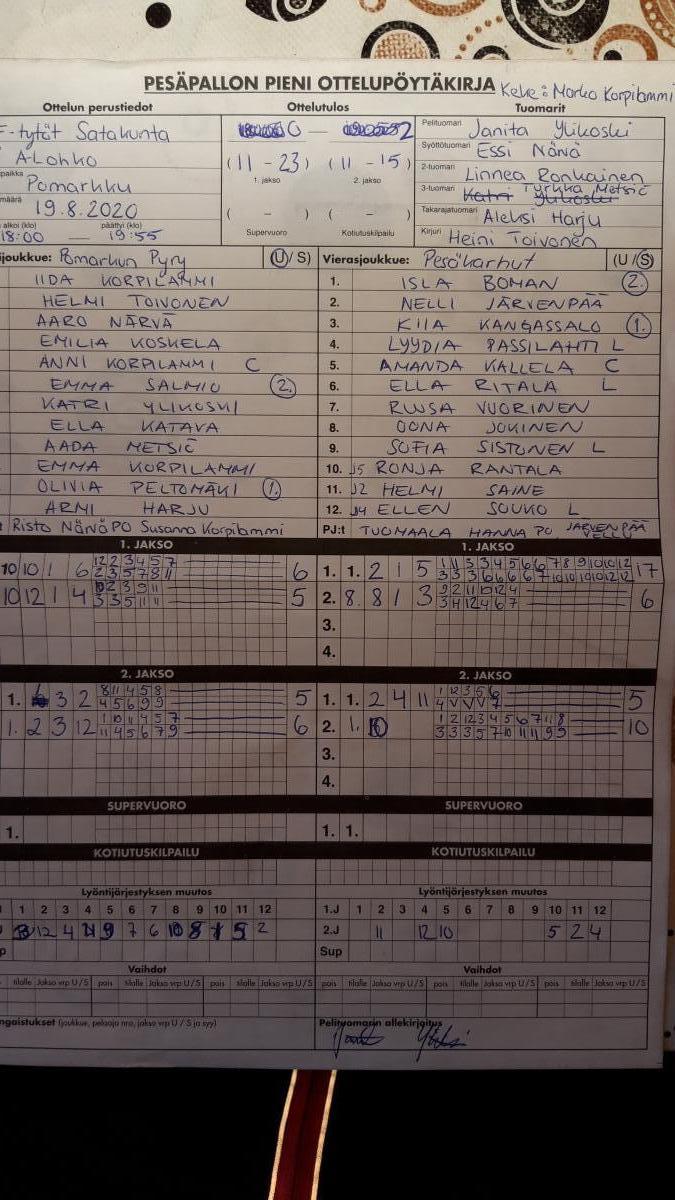 PESÄPALLON PIENI OTTELUPÖYTÄKIRJA Keke: Marko Korpilammi
Ottelun perustiedot Ottelutulos Tuomarit
F-tytöt Satakunta 0 — 2 Pelituomari Janita Ylikoski
A-Lohko (11 - 23) (11 - 15) Syöttötuomari Essi Närvä
paikka Pomarkku 1. jakso 2. jakso 2-tuomari Linnea Ronkainen
3-tuomari Katri Ylikoski Tyrkkö Metsic
määrä 19.8.2020 ( - ) ( - ) Takarajatuomari Aleksi Harju
alkoi (klo) päättyi (klo) Supervuoro Kotiutuskilpailu
18:00 — 19:55 Kirjuri Heini Toivonen
ijoukkue: Pomarkun Pyry (U/S) Vierasjoukkue: Pesäkarhut (U/S)
IIDA KORPILAMMI 1. ISLA BOMAN 2.
HELMI TOIVONEN 2. NELLI JÄRVENPÄÄ
AARO NÄRVÄ 3. KIIA KANGASSALO 1.
EMILIA KOSKELA 4. LYYDIA PASSILAHTI L
ANNI KORPILAMMI C 5. AMANDA KALLELA C
EMMA SALMIO 2. 6. ELLA RITALA L
KATRI YLIKOSKI 7. RUUSA VUORINEN
ELLA KATAVA 8. OONA JOKINEN
AADA METSIC 9. SOFIA SISTONEN L
EMMA KORPILAMMI 10. J5 RONJA RANTALA
OLIVIA PELTOMÄKI 1. 11. J2 HELMI SAINE
ARMI HARJU 12. J4 ELLEN SOUKO L
Risto Närvä PO Susanna Korpilammi PJ:t TUOMAALA HANNA PO JÄRVENPÄÄ VELLU
1. JAKSO 1. JAKSO
10 10 1 6 6 1. 1. 2 1 5 17
10 12 1 4 5 2. 8. 8 1 3 6
3.
4.
2. JAKSO 2. JAKSO
1. 3 2 5 1. 1. 2 4 11 5
1. 2 3 12 6 2. 1. 10
3.
4.
SUPERVUORO SUPERVUORO
1. 1. 1.
KOTIUTUSKILPAILU KOTIUTUSKILPAILU
Lyöntijärjestyksen muutos Lyöntijärjestyksen muutos
1 2 3 4 5 6 7 8 9 10 11 12 1.J 1 2 3 4 5 6 7 8 9 10 11 12
3 12 4 11 9 7 6 10 8 1 5 2 2.J 11 12 10 5 2 4
Sup
Vaihdot Vaihdot
tilalle Jakso vrp U/S pois tilalle Jakso vrp U/S pois tilalle Jakso vrp U/S pois tilalle Jakso vrp U/S pois tilalle Jakso vrp U/S pois tilalle Jakso vrp U/S
ngaistukset (joukkue, pelaaja nro, jakso vrp U / S ja syy) Pelituomarin allekirjoitus